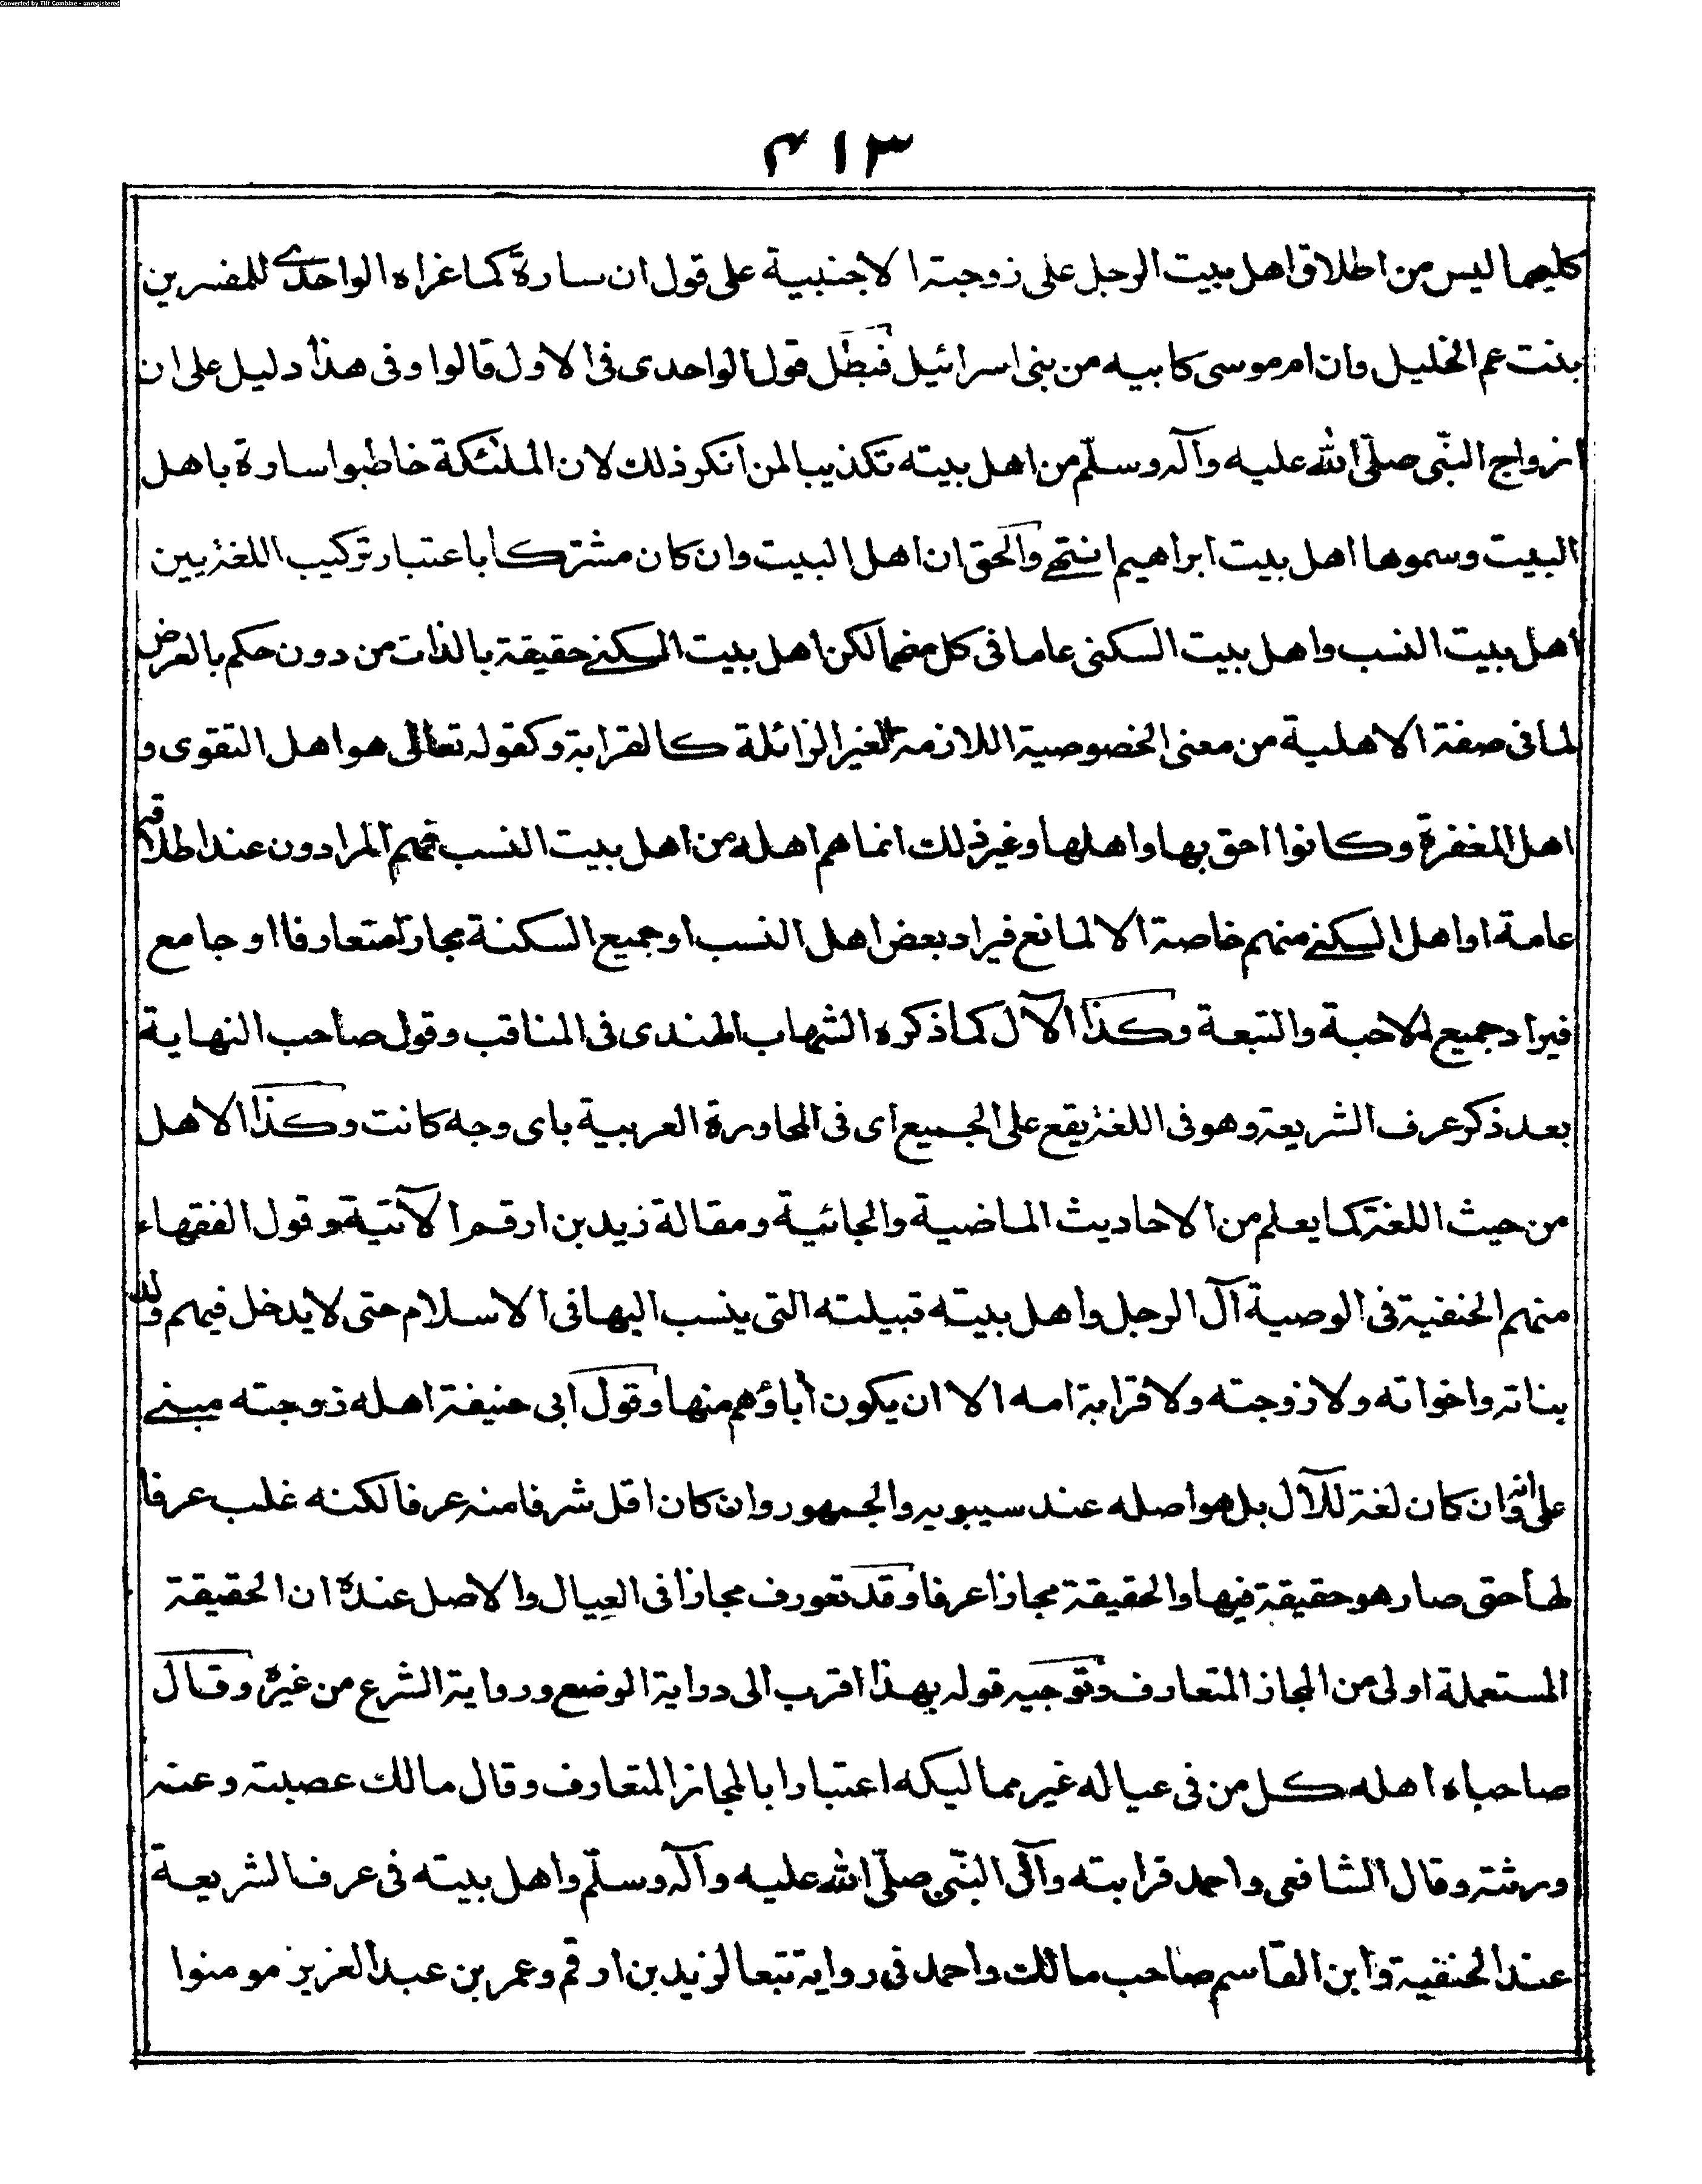 Converted by Tiff Combine - unregistered
۳۱۴
كليهما ليس من اطلاق اهل بيت الرجل على زوجته الاجنبية على قول ان سارة كما غراه الواحدى للمفسرين
بنت عم الخليل وان ام موسى كابيه من بنى اسرائيل فبطل قول الواحدى فى الاول قالوا وفى هذا دليل على ان
ازواج النبّى صلّى الله عليه وآله وسلّم من اهل بيته تكذيبا لمن انكر ذلك لان الملئكة خاطبوا سارة باهل
البيت وسموها اهل بيت ابراهيم انتهى والحق ان اهل البيت وان كان مشتركا باعتبار تركيب اللغة بين
اهل بيت النسب واهل بيت السكنى عاما فى كل منهما لكن اهل بيت السكنے حقيقة بالذات من دون حكم بالعرض
لما فى صفة الاهلية من معنى الخصوصية اللازمة الغير الزائلة كالقرابة وكقوله تعالى هو اهل التقوى و
اهل المغفرة وكانوا احق بها واهلها وغير ذلك انما هم اهله من اهل بيت النسب فهم المرادون عند اطلاقه
عامة او اهل السكنے منهم خاصة الا لمانع فيراد بعض اهل النسب او جميع السكنة مجازا متعارفا او جامع
فيراد جميع الاحبة والتبعة وكذا الآل كما ذكره الشهاب الهندى فى المناقب وقول صاحب النهاية
بعد ذكر عرف الشريعة وهو فى اللغة يقع على الجميع اى فى المحاورة العربية باى وجه كانت وكذا الاهل
من حيث اللغة كما يعلم من الاحاديث الماضية والجائية ومقالة زيد بن ارقم الآتية وقول الفقهاء
منهم الحنفية فى الوصية آل الرجل واهل بيته قبيلته التى ينسب اليها فى الاسلام حتى لا يدخل فيهم ولد
بناته واخواته ولا زوجته ولا قرابة امه الا ان يكون أباؤهم منها وقول ابى حنيفة اهله زوجته مبنے
على انه وان كان لغة للآل بل هو اصله عند سيبويه والجمهور وان كان اقل شرفا منه عرفا لكنه غلب عرفا
لها حتى صار هو حقيقة فيها والحقيقة مجازا عرفا وقد تعورف مجازا فى العيال والاصل عنده ان الحقيقة
المستعملة اولى من المجاز المتعارف وتوجيه قوله بهذا اقرب الى دراية الوضع ورواية الشرع من غيره وقال
صاحباه اهله كل من فى عياله غير مماليكه اعتبارا بالمجاز المتعارف وقال مالك عصبته وعنه
ورثته وقال الشافعى واحمد قرابته وآل النبّى صلّى الله عليه وآله وسلّم واهل بيته فى عرف الشريعة
عند الحنفية وابن القاسم صاحب مالك واحمد فى رواية تبعا لزيد بن ارقم وعمر بن عبد العزيز مومنوا